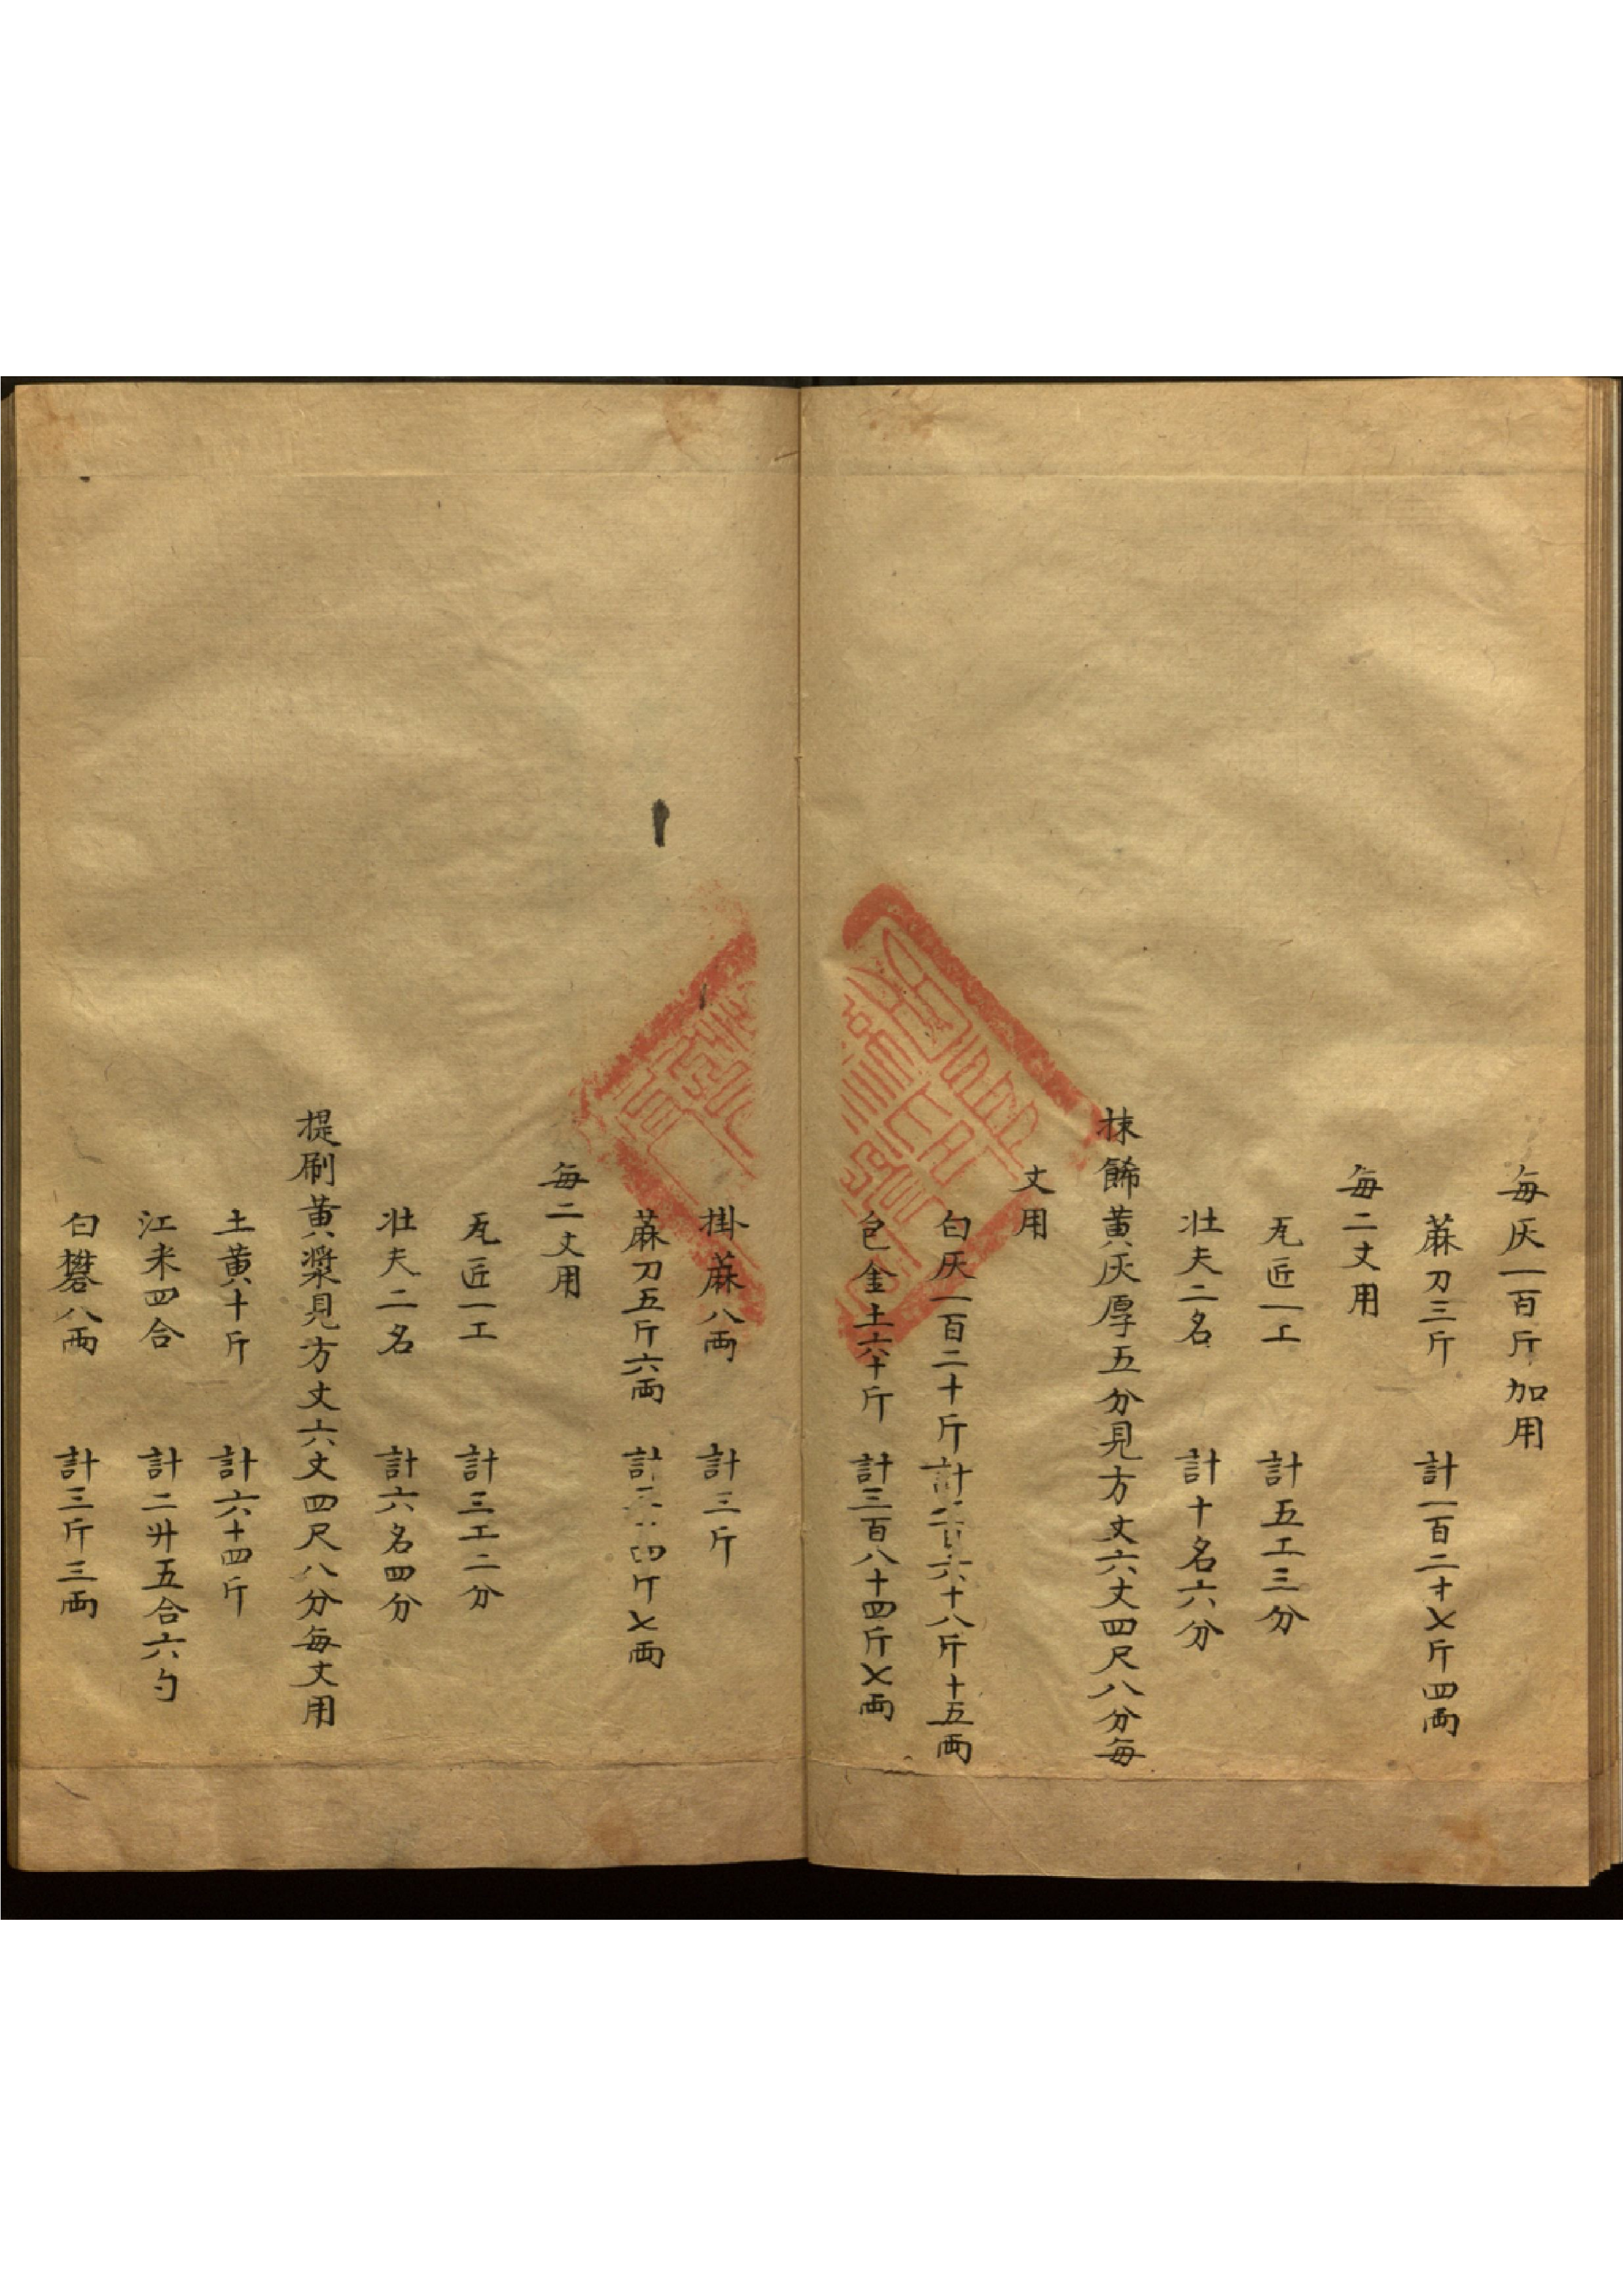 每灰一百斤加用
蔴刀三斤　計一百二十七斤四両
每二丈用
瓦匠一工　計五工三分
壮夫二名　計十名六分
抹餙黄灰厚五分見方丈六丈四尺八分每
丈用
白灰一百二十斤　計六十八斤十五両
包金土六十斤　計三百八十四斤七両
掛蔴八両　計三斤
蔴刀五斤六両　計四斤七両
每二丈用
瓦匠一工　計三工二分
壮夫二名　計六名四分
提刷黄漿見方丈六丈四尺八分每丈用
土黄十斤　計六十四斤
江米四合　計二升五合六勺
白礬八両　計三斤三両